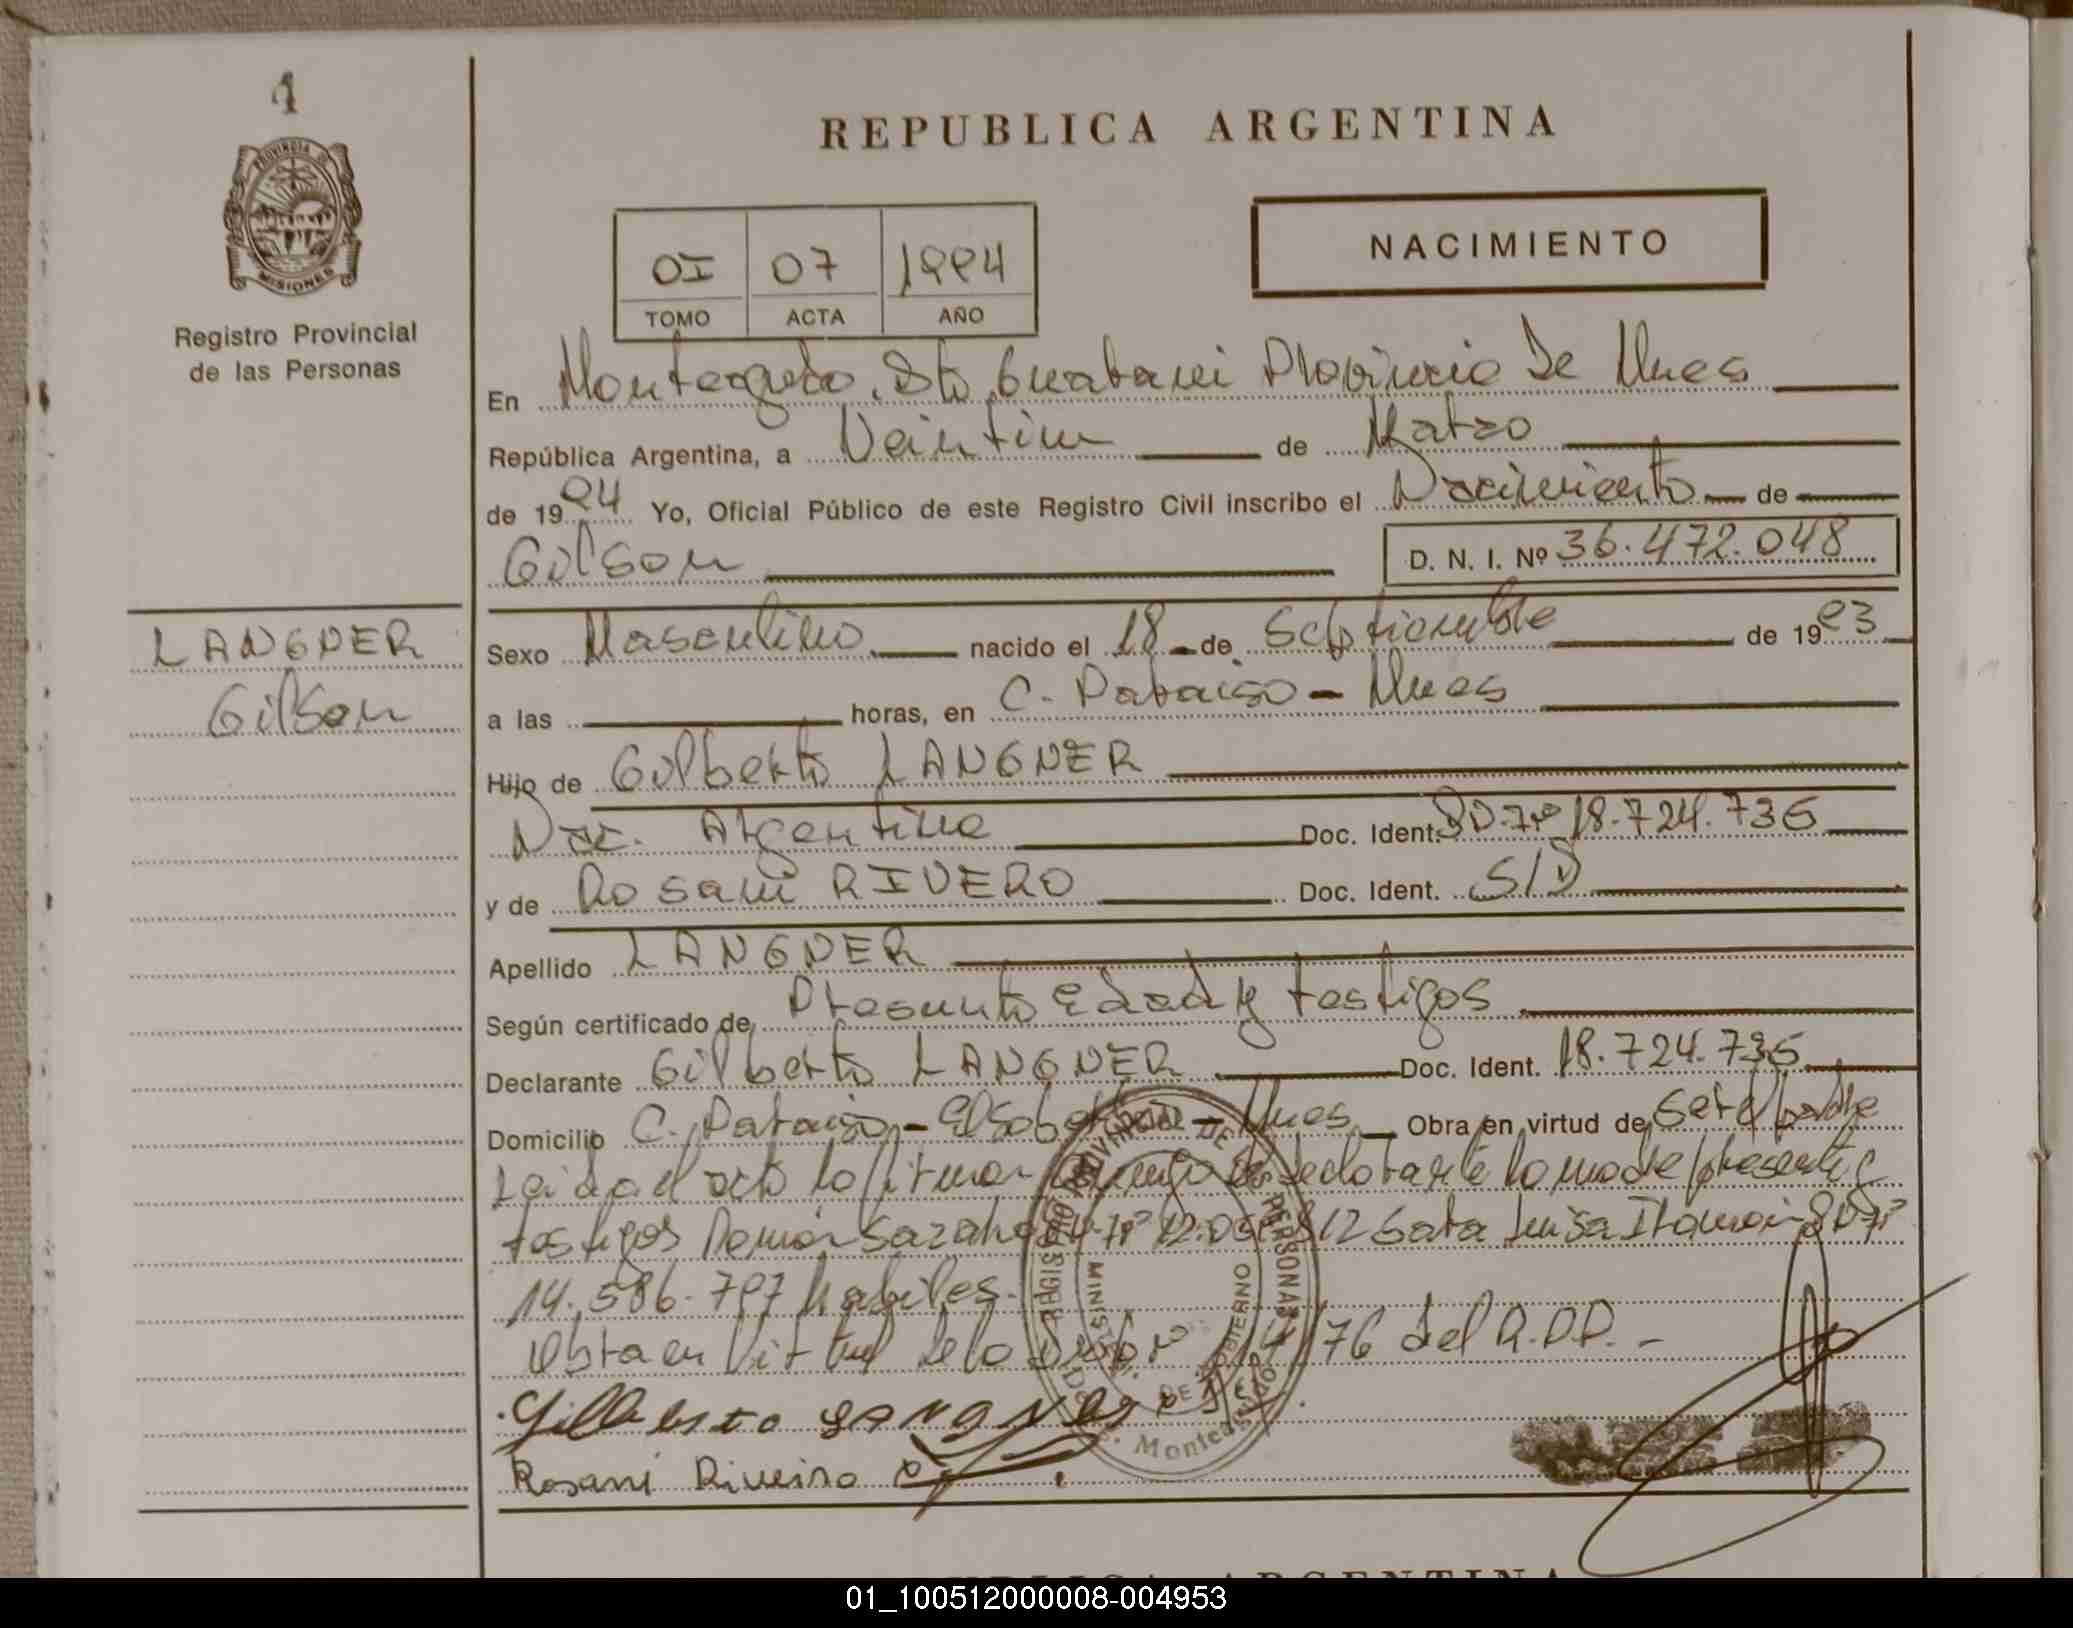 1
PROVINCIA DE
MISIONES
Registro Provincial
de las Personas
LANGNER
Gilson
REPUBLICA ARGENTINA
OI 07 1994
TOMO ACTA AÑO
NACIMIENTO
En Monteagudo. Dto Guarani Provincia De Mnes
República Argentina, a Veintiun de Marzo
de 1994 Yo, Oficial Público de este Registro Civil inscribo el Nacimiento de
Gilson D. N. I. Nº 36.472.048
Sexo Masculino nacido el 18 de Septiembre de 1993
a las horas, en C. Paraiso - Mnes
Hijo de Gilberto LANGNER
Nac. Argentina Doc. Ident. 18.724.736
y de Rosani RIVERO Doc. Ident. S/D
Apellido LANGNER
Según certificado de Presunta Edad y testigos
Declarante Gilberto LANGNER Doc. Ident. 18.724.736
Domicilio C. Paraiso - Mnes Obra en virtud de ser el padre
Leida el acta la firman conmigo el declarante la madre presente
testigos Ramón Luisa
14.586.797 habiles.
Obra en Virtud de la 14/76 del R.P.P. -
Gilberto Langner
Rosani Riveiro
REGISTRO PROVINCIAL DE PERSONAS
MINISTERIO DE GOBIERNO
Monteagudo
01_100512000008-004953